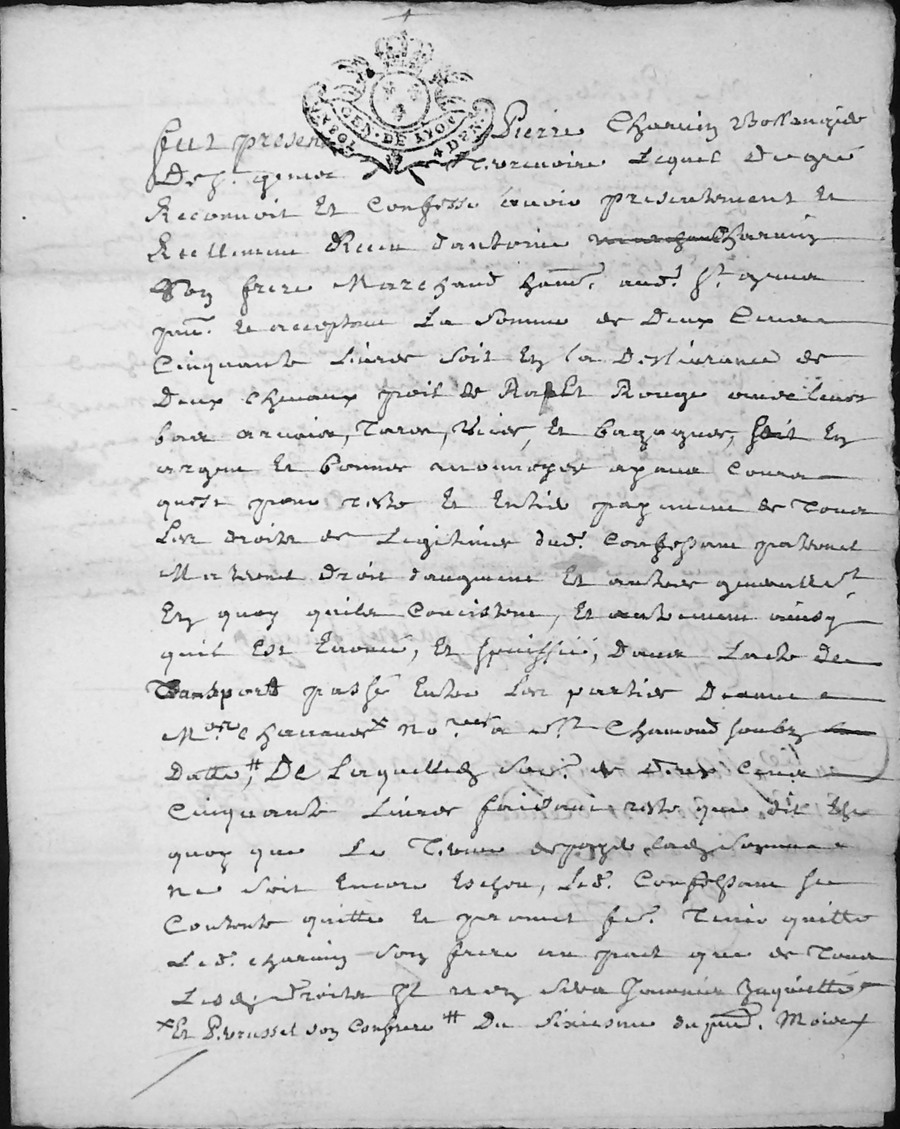 GEN. DE LYON
4 DEN.
fut present Pierre Charvin Bollengie
De St. genis Terrenoire Lequel De gré
Reconnoit Et Confesse avoir presentement Et
Reellement Receu dantoine Charvin
Son frere Marchand hant. aud. St. genis
pnt. Et acceptant La Somme de Deux Cents
Cinquante Livres Soit En la Deslivrance de
Deux Chevaux poil de Rouge avec leurs
bas arnois, Tares, Vices, Et bagages, Soit En
argent Et bonne monnoye ayant Cours
quest pour reste Et Entier payement de Tous
Les droits de Legitimes dud. Confessant paternel
Maternel droit daugment Et autres generallemt
En quoy quils Concistent, Et autrement ainsy
quil Est Enoncé, Et speciffié, Dans Lacte De
Transport passé Entre Les parties Devant
Me Charravel x nores a St Chamond soubz
Datte, # De Laquelle so. de Deux Cents
Cinquante Livres faisant reste que dit Est
quoy que Le Terme de payer lad. Somme
Ne Soit Encore Escheu, Led. Confessant Se
Contente quitte Et promet fe. Tenir quitte
Led. Charvin Son frere au pact que de Tous
Lesd. Droits Il nen Sera Jamais Inquietté
x Et Son Confrere # Du Sixiesme du pnt. Mois x